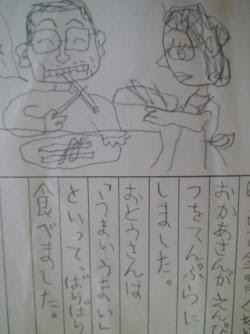 おかあさんが、えんぴ
つをてんぷらに
しました。
おとうさんは
「うまい、うまい」
といって、ばりばり
食べました。